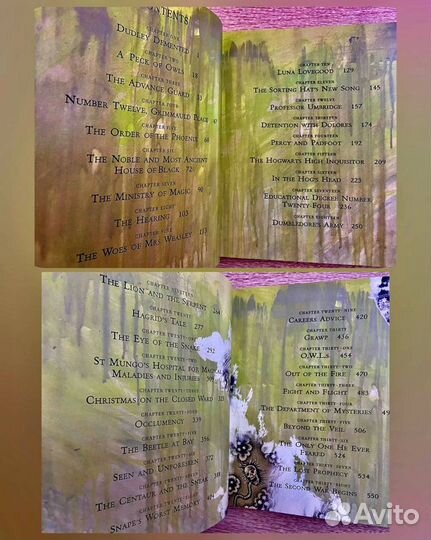 CONTENTS
CHAPTER ONE
DUDLEY DEMENTED
CHAPTER TWO
A PECK OF OWLS 18
CHAPTER THREE
THE ADVANCE GUARD
CHAPTER FOUR
NUMBER TWELVE, GRIMMAULD PLACE 47
CHAPTER FIVE
THE ORDER OF THE PHOENIX 64
CHAPTER SIX
THE NOBLE AND MOST ANCIENT
HOUSE OF BLACK
CHAPTER SEVEN
THE MINISTRY OF MAGIC 90
CHAPTER EIGHT
THE HEARING 103
CHAPTER NINE
THE WOES OF MRS WEASLEY
CHAPTER TEN
LUNA LOVEGOOD 129
CHAPTER ELEVEN
THE SORTING HAT'S NEW SONG 145
CHAPTER TWELVE
PROFESSOR UMBRIDGE 157
CHAPTER THIRTEEN
DETENTION WITH DOLORES 174
CHAPTER FOURTEEN
PERCY AND PADFOOT 192
CHAPTER FIFTEEN
THE HOGWARTS HIGH INQUISITOR 209
CHAPTER SIXTEEN
IN THE HOG'S HEAD 223
CHAPTER SEVENTEEN
EDUCATIONAL DECREE NUMBER
TWENTY-FOUR 236
CHAPTER EIGHTEEN
DUMBLEDORE'S ARMY 250
CHAPTER NINETEEN
THE LION AND THE SERPENT 264
CHAPTER TWENTY
HAGRID'S TALE 277
CHAPTER TWENTY-ONE
THE EYE OF THE SNAKE 292
CHAPTER TWENTY-TWO
ST MUNGO'S HOSPITAL FOR MAGICAL
MALADIES AND INJURIES
CHAPTER TWENTY-THREE
CHRISTMAS ON THE CLOSED WARD
CHAPTER TWENTY-FOUR
OCCLUMENCY
CHAPTER TWENTY-FIVE
THE BEETLE AT BAY 356
CHAPTER TWENTY-SIX
SEEN AND UNFORESEEN 372
CHAPTER TWENTY-SEVEN
THE CENTAUR AND THE SNEAK
CHAPTER TWENTY-EIGHT
SNAPE'S WORST MEMORY
CHAPTER TWENTY-NINE
CAREERS ADVICE 420
CHAPTER THIRTY
GRAWP
CHAPTER THIRTY-ONE
O.W.LS 454
CHAPTER THIRTY-TWO
OUT OF THE FIRE 470
CHAPTER THIRTY-THREE
FIGHT AND FLIGHT 483
CHAPTER THIRTY-FOUR
THE DEPARTMENT OF MYSTERIES 49
CHAPTER THIRTY-FIVE
BEYOND THE VEIL 506
CHAPTER THIRTY-SIX
THE ONLY ONE HE EVER
FEARED 524
CHAPTER THIRTY-SEVEN
THE LOST PROPHECY 534
CHAPTER THIRTY-EIGHT
THE SECOND WAR BEGINS 550
Avito